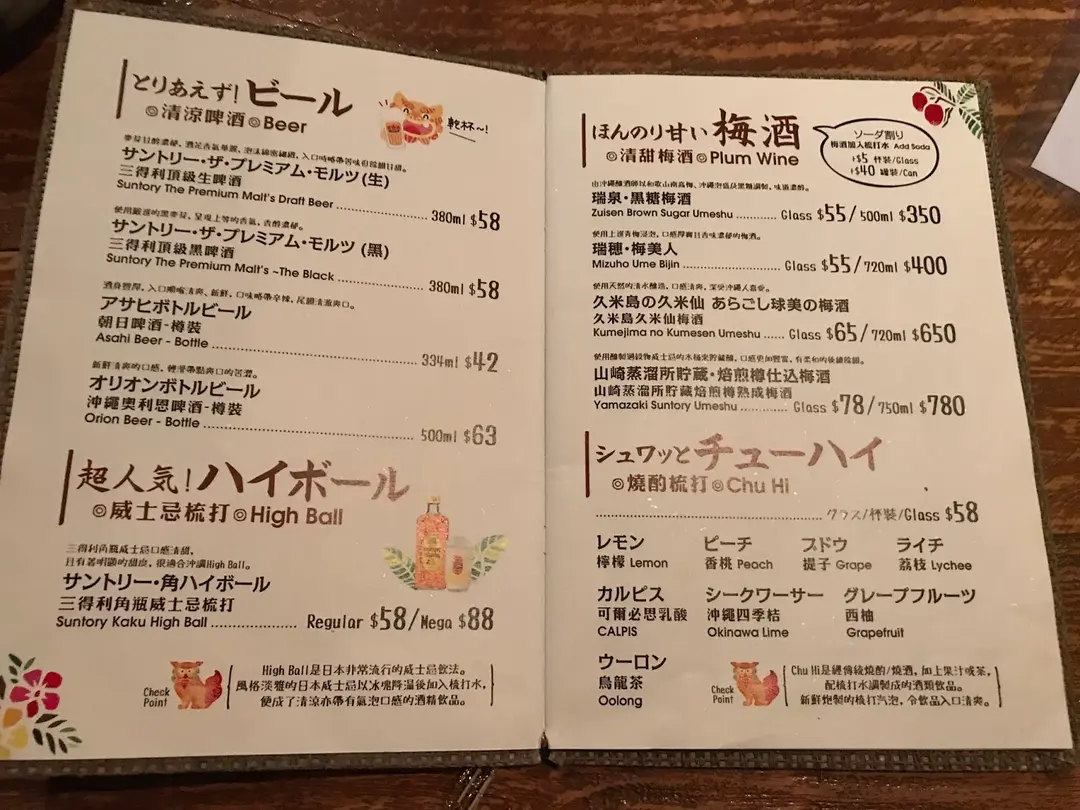 とりあえず! ビール
◎清涼啤酒◎Beer
乾杯~!
サントリー・ザ・プレミアム・モルツ(生)
三得利頂級生啤酒
Suntory The Premium Malt's Draft Beer ........ 380ml $58
サントリー・ザ・プレミアム・モルツ(黒)
三得利頂級黒啤酒
Suntory The Premium Malt's ~The Black ........ 380ml $58
アサヒボトルビール
朝日啤酒-樽裝
Asahi Beer - Bottle ........ 334ml $42
オリオンボトルビール
沖繩奧利恩啤酒-樽裝
Orion Beer - Bottle ........ 500ml $63
超人気! ハイボール
◎威士忌梳打◎High Ball
三得利角瓶威士忌口感清甜,
且有著明顯的甜度,很適合沖調High Ball。
サントリー・角ハイボール
三得利角瓶威士忌梳打
Suntory Kaku High Ball ........ Regular $58/Mega $88
Check Point
High Ball是日本非常流行的威士忌飲法。
風格淡雅的日本威士忌以冰塊降溫後加入梳打水,
便成了清涼亦帶有氣泡口感的酒精飲品。
ほんのり甘い 梅酒
◎清甜梅酒◎Plum Wine
ソーダ割り
梅酒加入梳打水 Add Soda
+$5 杯裝/Glass
+$40 罐裝/Can
瑞泉・黒糖梅酒
Zuisen Brown Sugar Umeshu ........ Glass $55/500ml $350
瑞穂・梅美人
Mizuho Ume Bijin ........ Glass $55/720ml $400
使用天然的清水釀造,口感清爽,深受沖繩人喜愛。
久米島の久米仙 あらごし球美の梅酒
久米島久米仙梅酒
Kumejima no Kumesen Umeshu ........ Glass $65/720ml $650
山崎蒸溜所貯蔵・焙煎樽仕込梅酒
山崎蒸溜所貯蔵焙煎樽熟成梅酒
Yamazaki Suntory Umeshu ........ Glass $78/750ml $780
シュワッと チューハイ
◎燒酌梳打◎Chu Hi
........ グラス/杯裝/Glass $58
レモン ピーチ ブドウ ライチ
檸檬 Lemon 香桃 Peach 提子 Grape 荔枝 Lychee
カルピス シークワーサー グレープフルーツ
可爾必思乳酸 沖繩四季桔 西柚
CALPIS Okinawa Lime Grapefruit
ウーロン
烏龍茶
Oolong
Check Point
Chu Hi是經傳統燒酌/燒酒,加上果汁或茶,
配梳打水調製成的酒類飲品。
新鮮炮製的梳打汽泡,令飲品入口清爽。